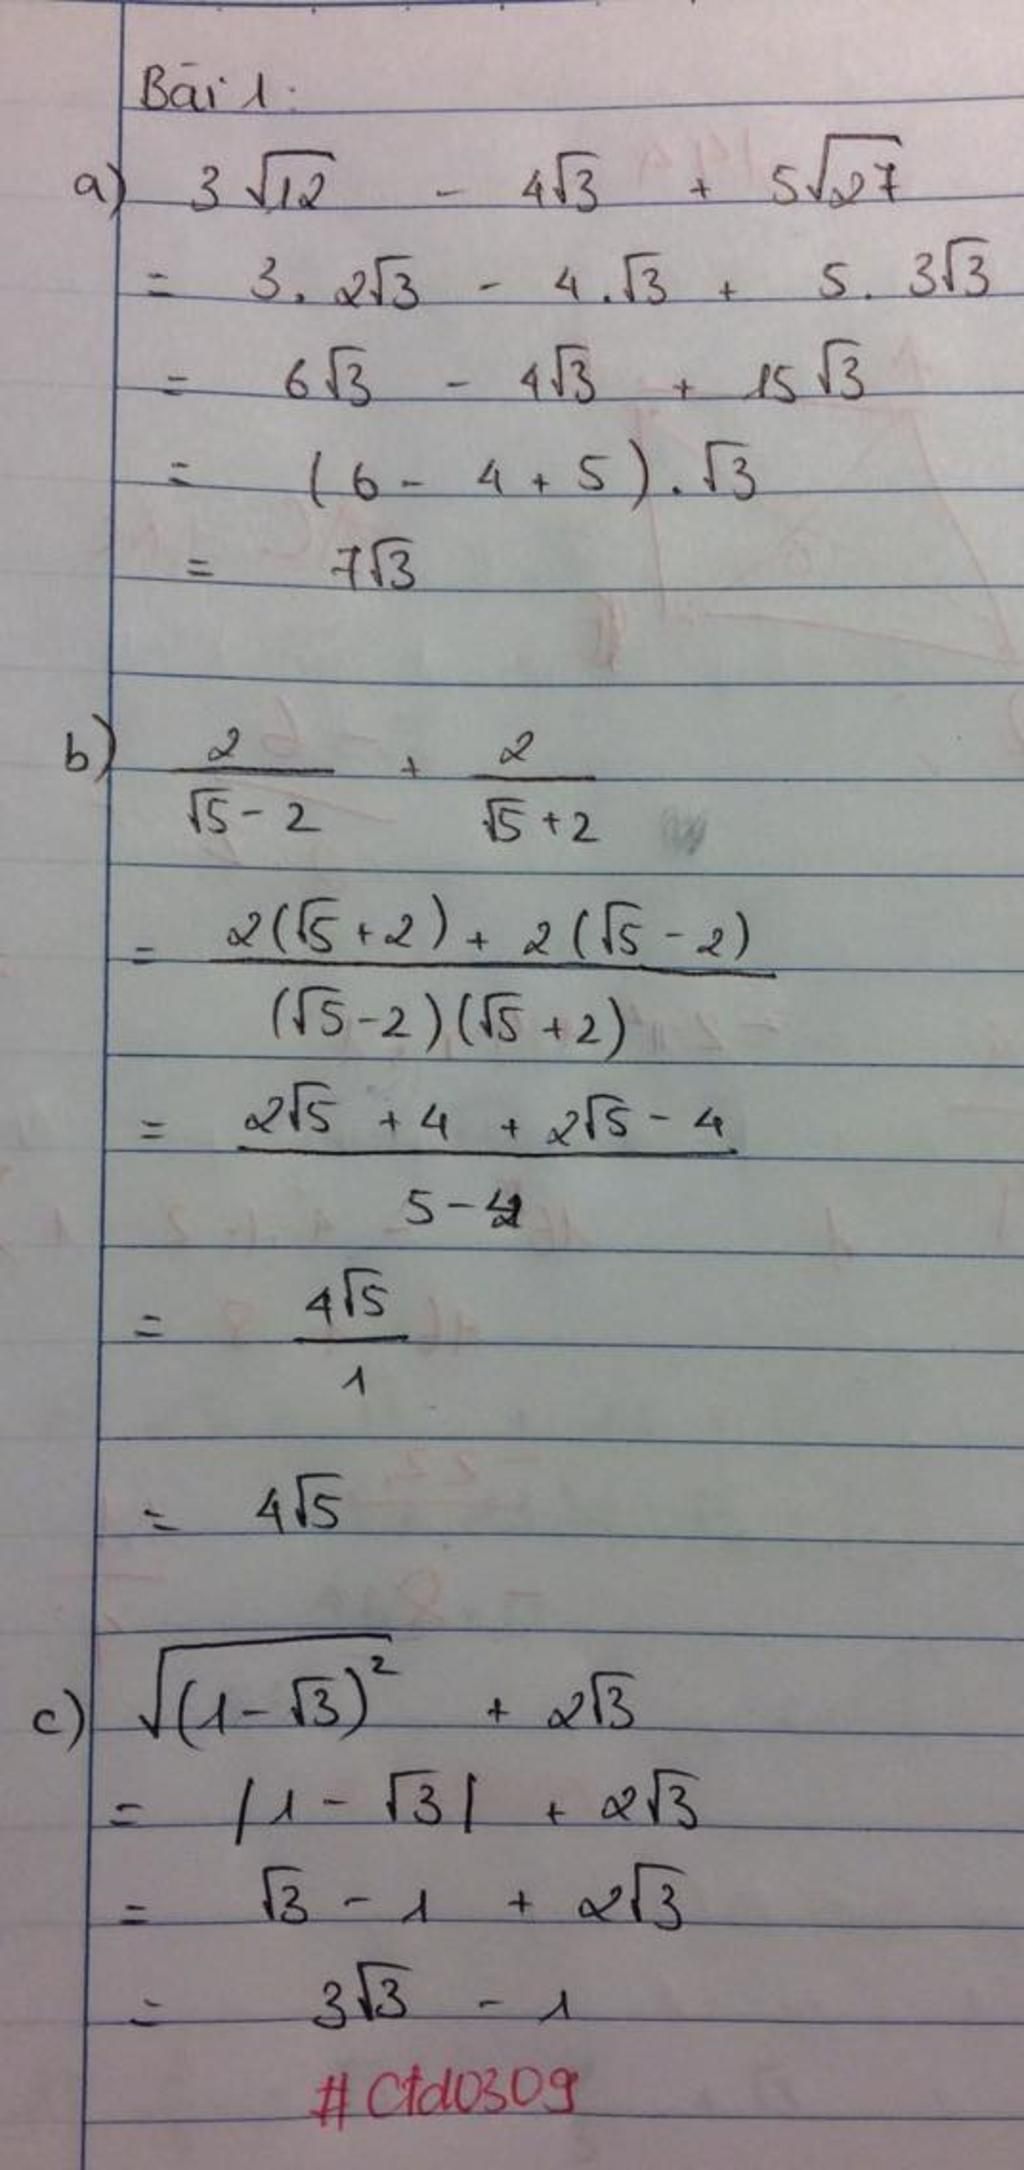 Bài 1:
a) 3√12 - 4√3 + 5√27
= 3. 2√3 - 4.√3 + 5. 3√3
= 6√3 - 4√3 + 15√3
= (6 - 4 + 5).√3
= 7√3
b) 2/(√5 - 2) + 2/(√5 + 2)
= (2(√5 + 2) + 2(√5 - 2))/((√5 - 2)(√5 + 2))
= (2√5 + 4 + 2√5 - 4)/(5 - 4)
= 4√5/1
= 4√5
c) √((1 - √3)²) + 2√3
= |1 - √3| + 2√3
= √3 - 1 + 2√3
= 3√3 - 1
#Ctd0309